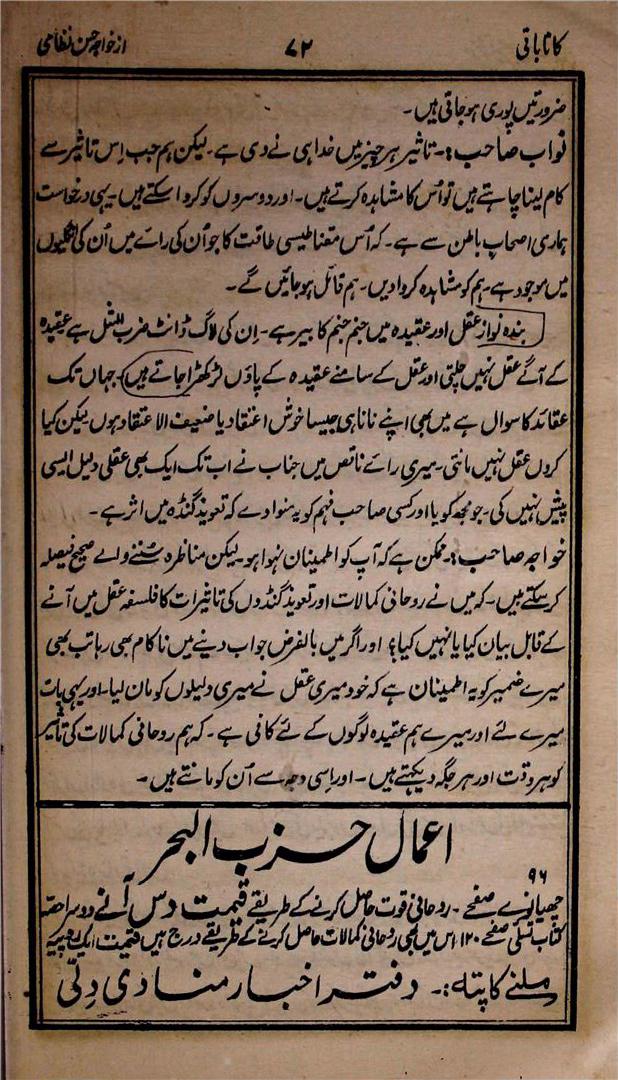 کانا باتی ۷۲ از خواجہ حسن نظامی
ضرورتیں پوری ہوجاتی ہیں۔
نواب صاحب:۔ تاثیر ہر چیز میں خدا ہی نے دی ہے۔ لیکن ہم جب اِس تاثیر سے
کام لینا چاہتے ہیں تو اُس کا مشاہدہ کرتے ہیں۔ اور دوسروں کو کروا سکتے ہیں۔ یہی درخواست
ہماری اصحاب باطن سے ہے۔ کہ اُس مقناطیسی طاقت کا جو اُن کی رائے میں اُن کی انگلیوں
میں موجود ہے۔ ہم کو مشاہدہ کروادیں۔ ہم قائل ہوجائیں گے۔
بندہ نواز عقل اور عقیدہ میں جنم جنم کا بیر ہے۔ اِن کی لاگ ڈانٹ ضرب المثل ہے عقیدہ
کے آگے عقل نہیں چلتی اور عقل کے سامنے عقیدہ کے پاؤں لڑکھڑا جاتے ہیں۔ جہاں تک
عقائد کا سوال ہے میں بھی اپنے نانا ہی جیسا خوش اعتقاد یا ضعیف الاعتقاد ہوں لیکن کیا
کروں عقل نہیں مانتی۔ میری رائے ناقص میں جناب نے اب تک ایک بھی عقلی دلیل ایسی
پیش نہیں کی۔ جو مجھ کو یا اور کسی صاحب فہم کو یہ منوا دے کہ تعویذ گنڈہ میں اثر ہے۔
خواجہ صاحب:۔ ممکن ہے کہ آپ کو اطمینان نہوا ہو۔ لیکن مناظرہ سُننے والے صحیح فیصلہ
کر سکتے ہیں۔ کہ میں نے روحانی کمالات اور تعویذ گنڈوں کی تاثیرات کا فلسفہ عقل میں آنے
کے قابل بیان کیا یا نہیں کیا؟ اور اگر میں بالفرض جواب دینے میں ناکام بھی رہا تب بھی
میرے ضمیر کو یہ اطمینان ہے کہ خود میری عقل نے میری دلیلوں کو مان لیا۔ اور یہی بات
میرے لئے اور میرے ہم عقیدہ لوگوں کے لئے کافی ہے۔ کہ ہم روحانی کمالات کی تاثیر
کو ہر وقت اور ہر جگہ دیکھتے ہیں۔ اور اِسی وجہ سے اُن کو مانتے ہیں۔
اعمال حزب البحر
۹۶
چھیانوے صفحے۔ روحانی قوت حاصل کرنے کے طریقے قیمت دس آنے دوسرا حصہ
کتاب تسلی صفحے ۱۲۰ اس میں بھی روحانی کمالات حاصل کرنے کے طریقے درج ہیں قیمت ایک روپیہ
ملنے کا پتہ:۔ دفتر اخبار منادی دِلّی